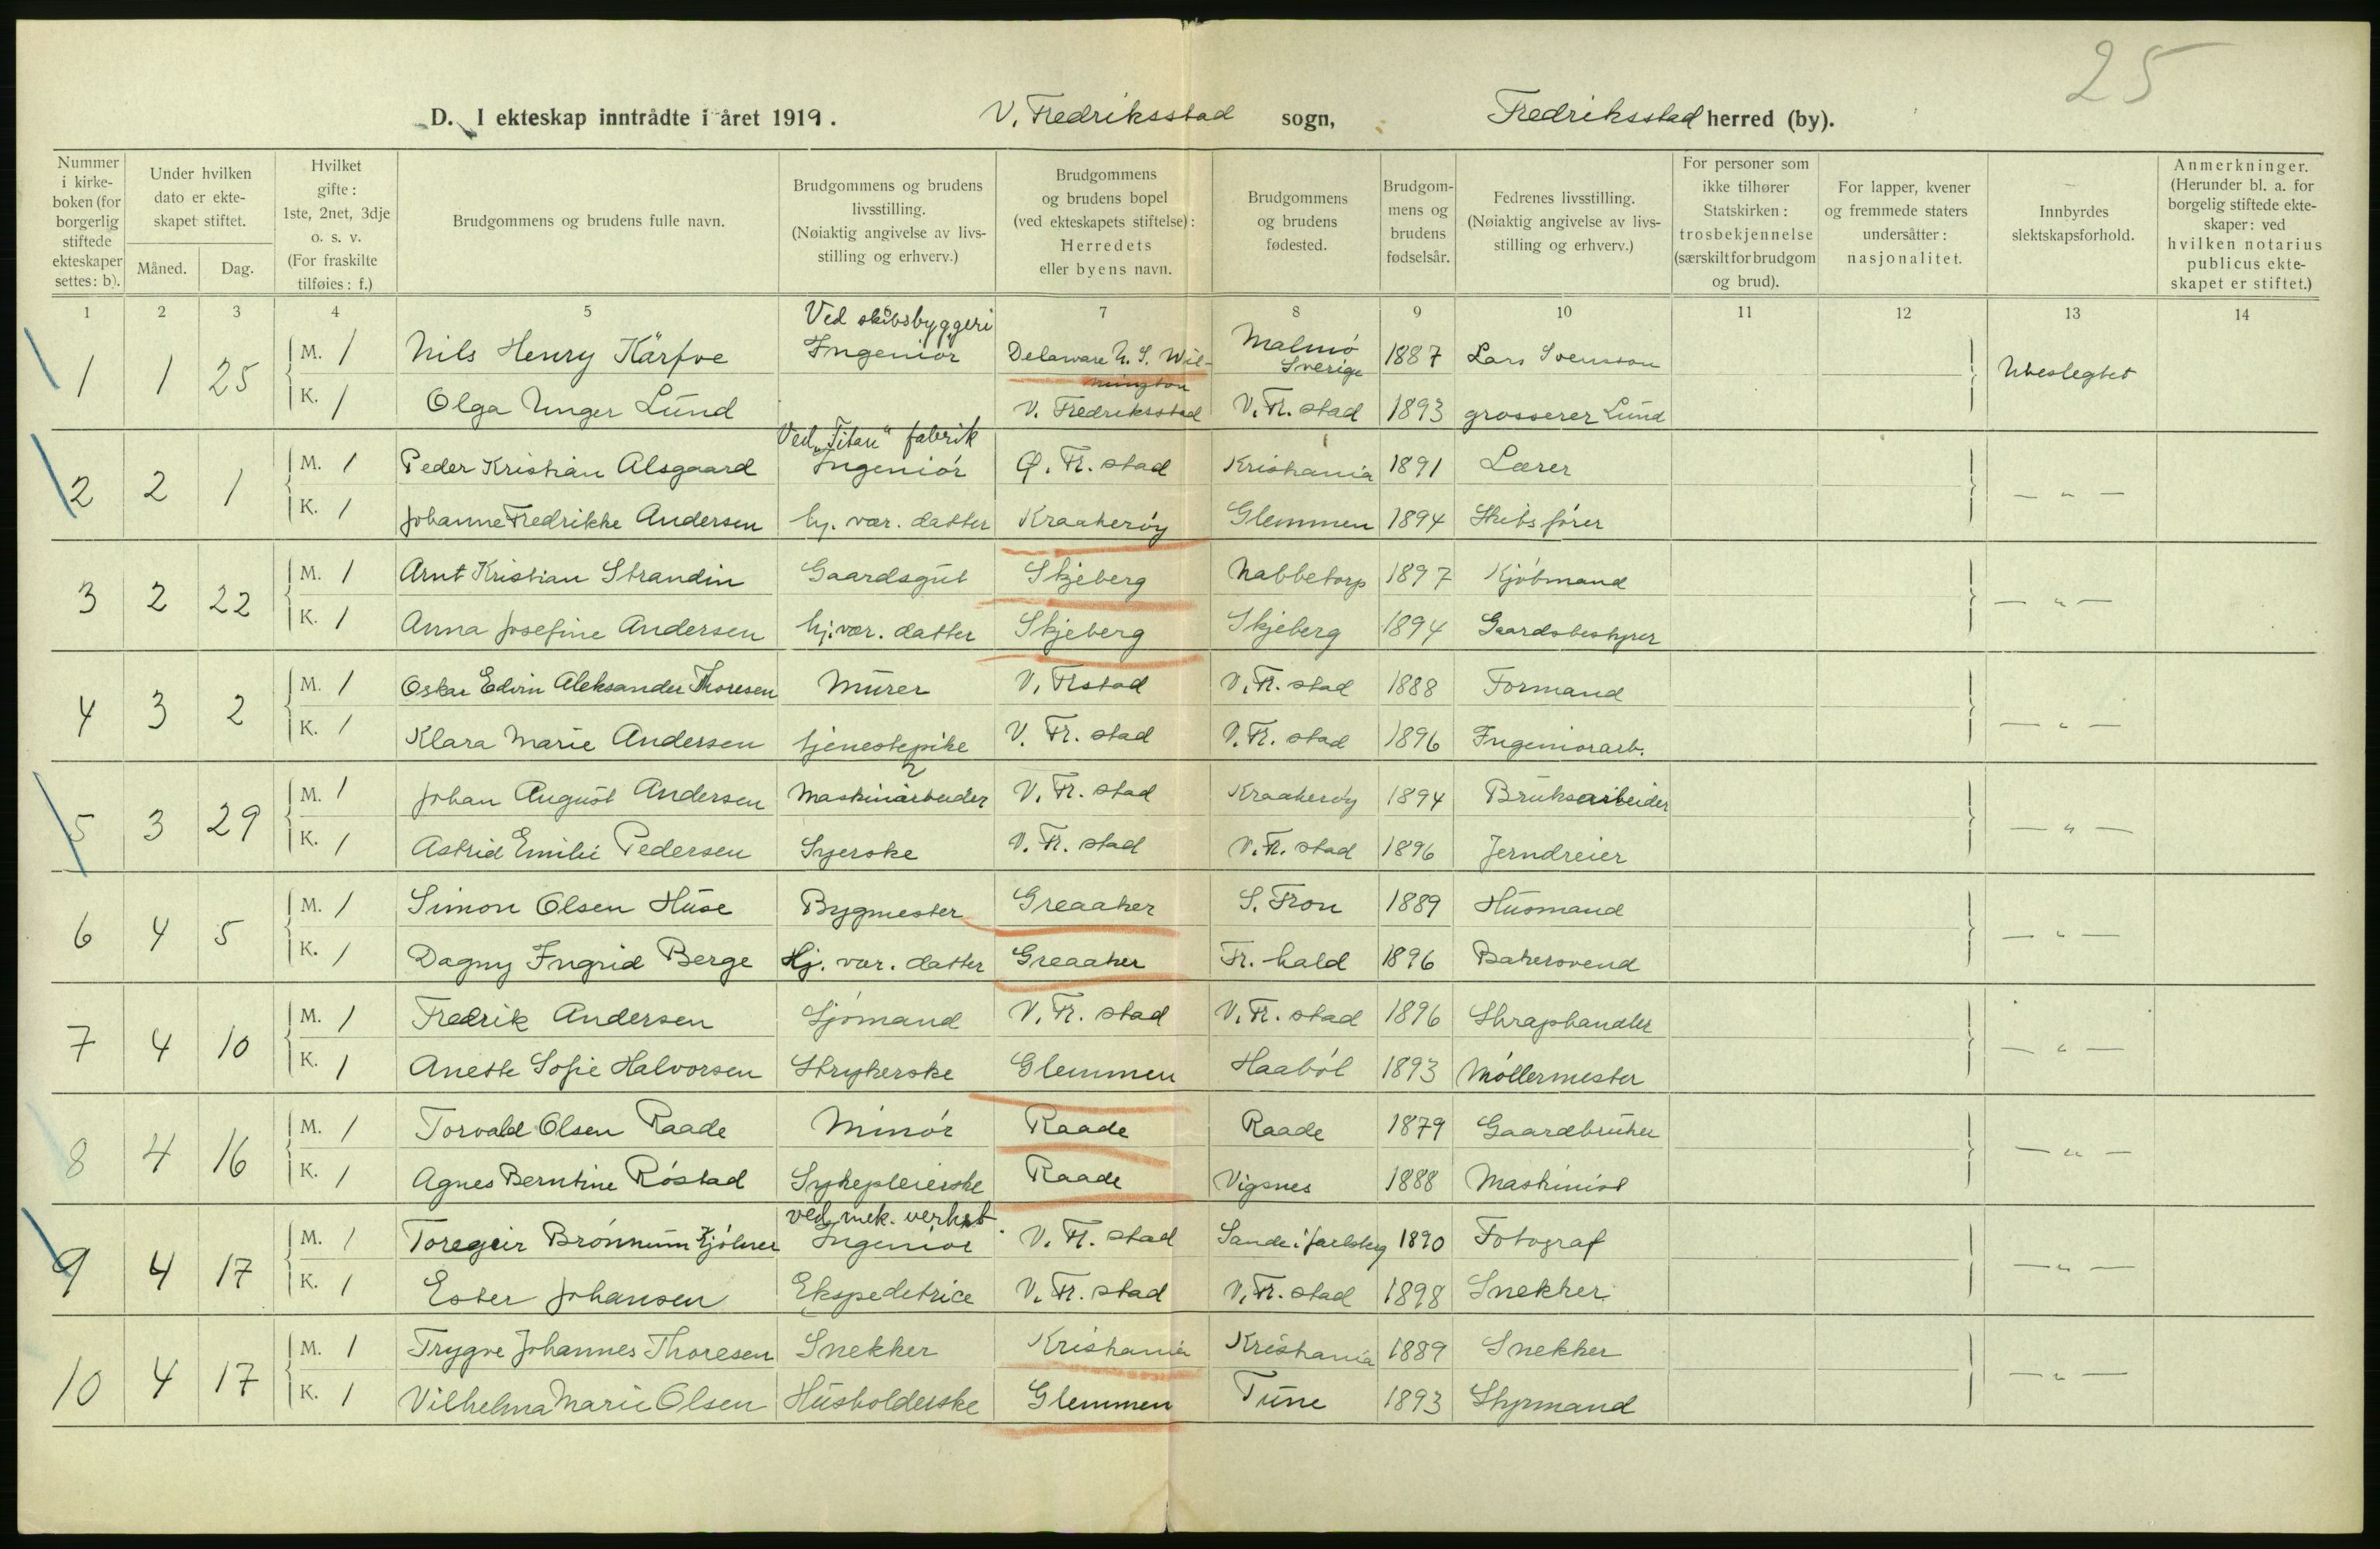 25
D. I ekteskap inntrådte i året 1919. V. Fredriksstad sogn, Fredriksstad herred (by).
Nummer i kirkeboken (for borgerlig stiftede ekteskaper settes: b).
Under hvilken dato er ekteskapet stiftet.
Måned. Dag.
Hvilket gifte: 1ste, 2net, 3dje o. s. v. (For fraskilte tilføies: f.)
Brudgommens og brudens fulle navn.
Brudgommens og brudens livsstilling. (Nøiaktig angivelse av livsstilling og erhverv.)
Brudgommens og brudens bopel (ved ekteskapets stiftelse): Herredets eller byens navn.
Brudgommens og brudens fødested.
Brudgommens og brudens fødselsår.
Fedrenes livsstilling. (Nøiaktig angivelse av livsstilling og erhverv.)
For personer som ikke tilhører Statskirken: trosbekjennelse (særskilt for brudgom og brud).
For lapper, kvener og fremmede staters undersåtter: nasjonalitet.
Innbyrdes slektskapsforhold.
Anmerkninger. (Herunder bl. a. for borgelig stiftede ekteskaper: ved hvilken notarius publicus ekteskapet er stiftet.)
1 2 3 4 5 6 7 8 9 10 11 12 13 14
1 1 25 M. 1 Nils Henry Kärfve Ved skibsbyggeri Ingeniör Delaware U. S. Wilmington Malmö Sverige 1887 Lars Svensson Ubeslegtet
K. 1 Olga Unger Lund V. Fredriksstad V. Fr. stad 1893 grosserer Lund
2 2 1 M. 1 Peder Kristian Alsgaard Ved „Titan" fabrik Ingeniör Ø. Fr. stad Kristiania 1891 Lærer — " —
K. 1 Johanne Fredrikke Andersen hj. vær. datter Kraakeröy Glemmen 1894 Skibsförer
3 2 22 M. 1 Arnt Kristian Strandin Gaardsgut Skjeberg Nabbetorp 1897 Kjöbmand — " —
K. 1 Anna Josefine Andersen hj. vær. datter Skjeberg Skjeberg 1894 Gaardsbestyrer
4 3 2 M. 1 Oskar Edvin Aleksander Thoresen Murer V. Frstad V. Fr. stad 1888 Formand — " —
K. 1 Klara Marie Andersen tjenestepike V. Fr. stad V. Fr. stad 1896 Ingeniorarb.
5 3 29 M. 1 Johan August Andersen Maskinarbeider V. Fr. stad Kraakeröy 1894 Bruksarbeider — " —
K. 1 Astrid Emilie Pedersen Syerske V. Fr. stad V. Fr. stad 1896 Jerndreier
6 4 5 M. 1 Simon Olsen Huse Bygmester Greaaker S. Fron 1889 Husmand — " —
K. 1 Dagny Ingrid Berge Hj. vær. datter Greaaker Fr. hald 1896 Bakersvend
7 4 10 M. 1 Fredrik Andersen Sjömand V. Fr. stad V. Fr. stad 1896 Skraphandler — " —
K. 1 Anette Sofie Halvorsen Strykerske Glemmen Haaböl 1893 Möllermester
8 4 16 M. 1 Torvald Olsen Raade Minör Raade Raade 1879 Gaardbruker — " —
K. 1 Agnes Berntine Röstad Sykepleierske Raade Vigsnes 1888 Maskinist
9 4 17 M. 1 Toregeir Brönnum Kjölner ved mek. verkst. Ingeniör V. Fr. stad Sande i Jarlsberg 1890 Fotograf — " —
K. 1 Ester Johansen Ekspeditrice V. Fr. stad V. Fr. stad 1898 Snekker
10 4 17 M. 1 Trygve Johannes Thoresen Snekker Kristiania Kristiania 1889 Snekker — " —
K. 1 Vilhelma Marie Olsen Husholderske Glemmen Tune 1893 Styrmand